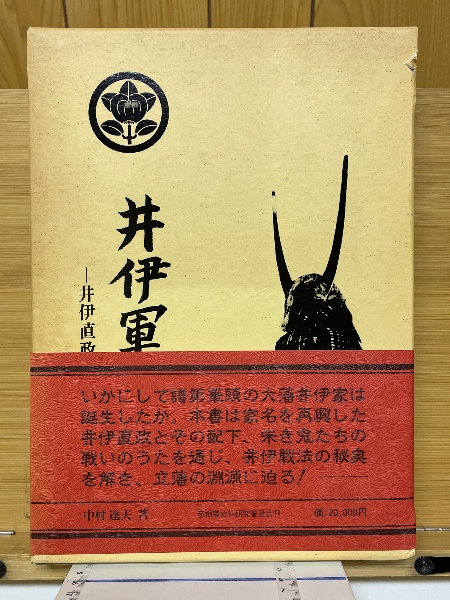 井伊軍
―井伊直政
いかにして譜代筆頭の大藩井伊家は
誕生したか。本書は家名を再興した
井伊直政とその配下、朱き鬼たちの
戦いのうたを通じ、井伊戦法の秘奥
を解き、立藩の淵源に迫る！
中村達夫 著
価/20,000円